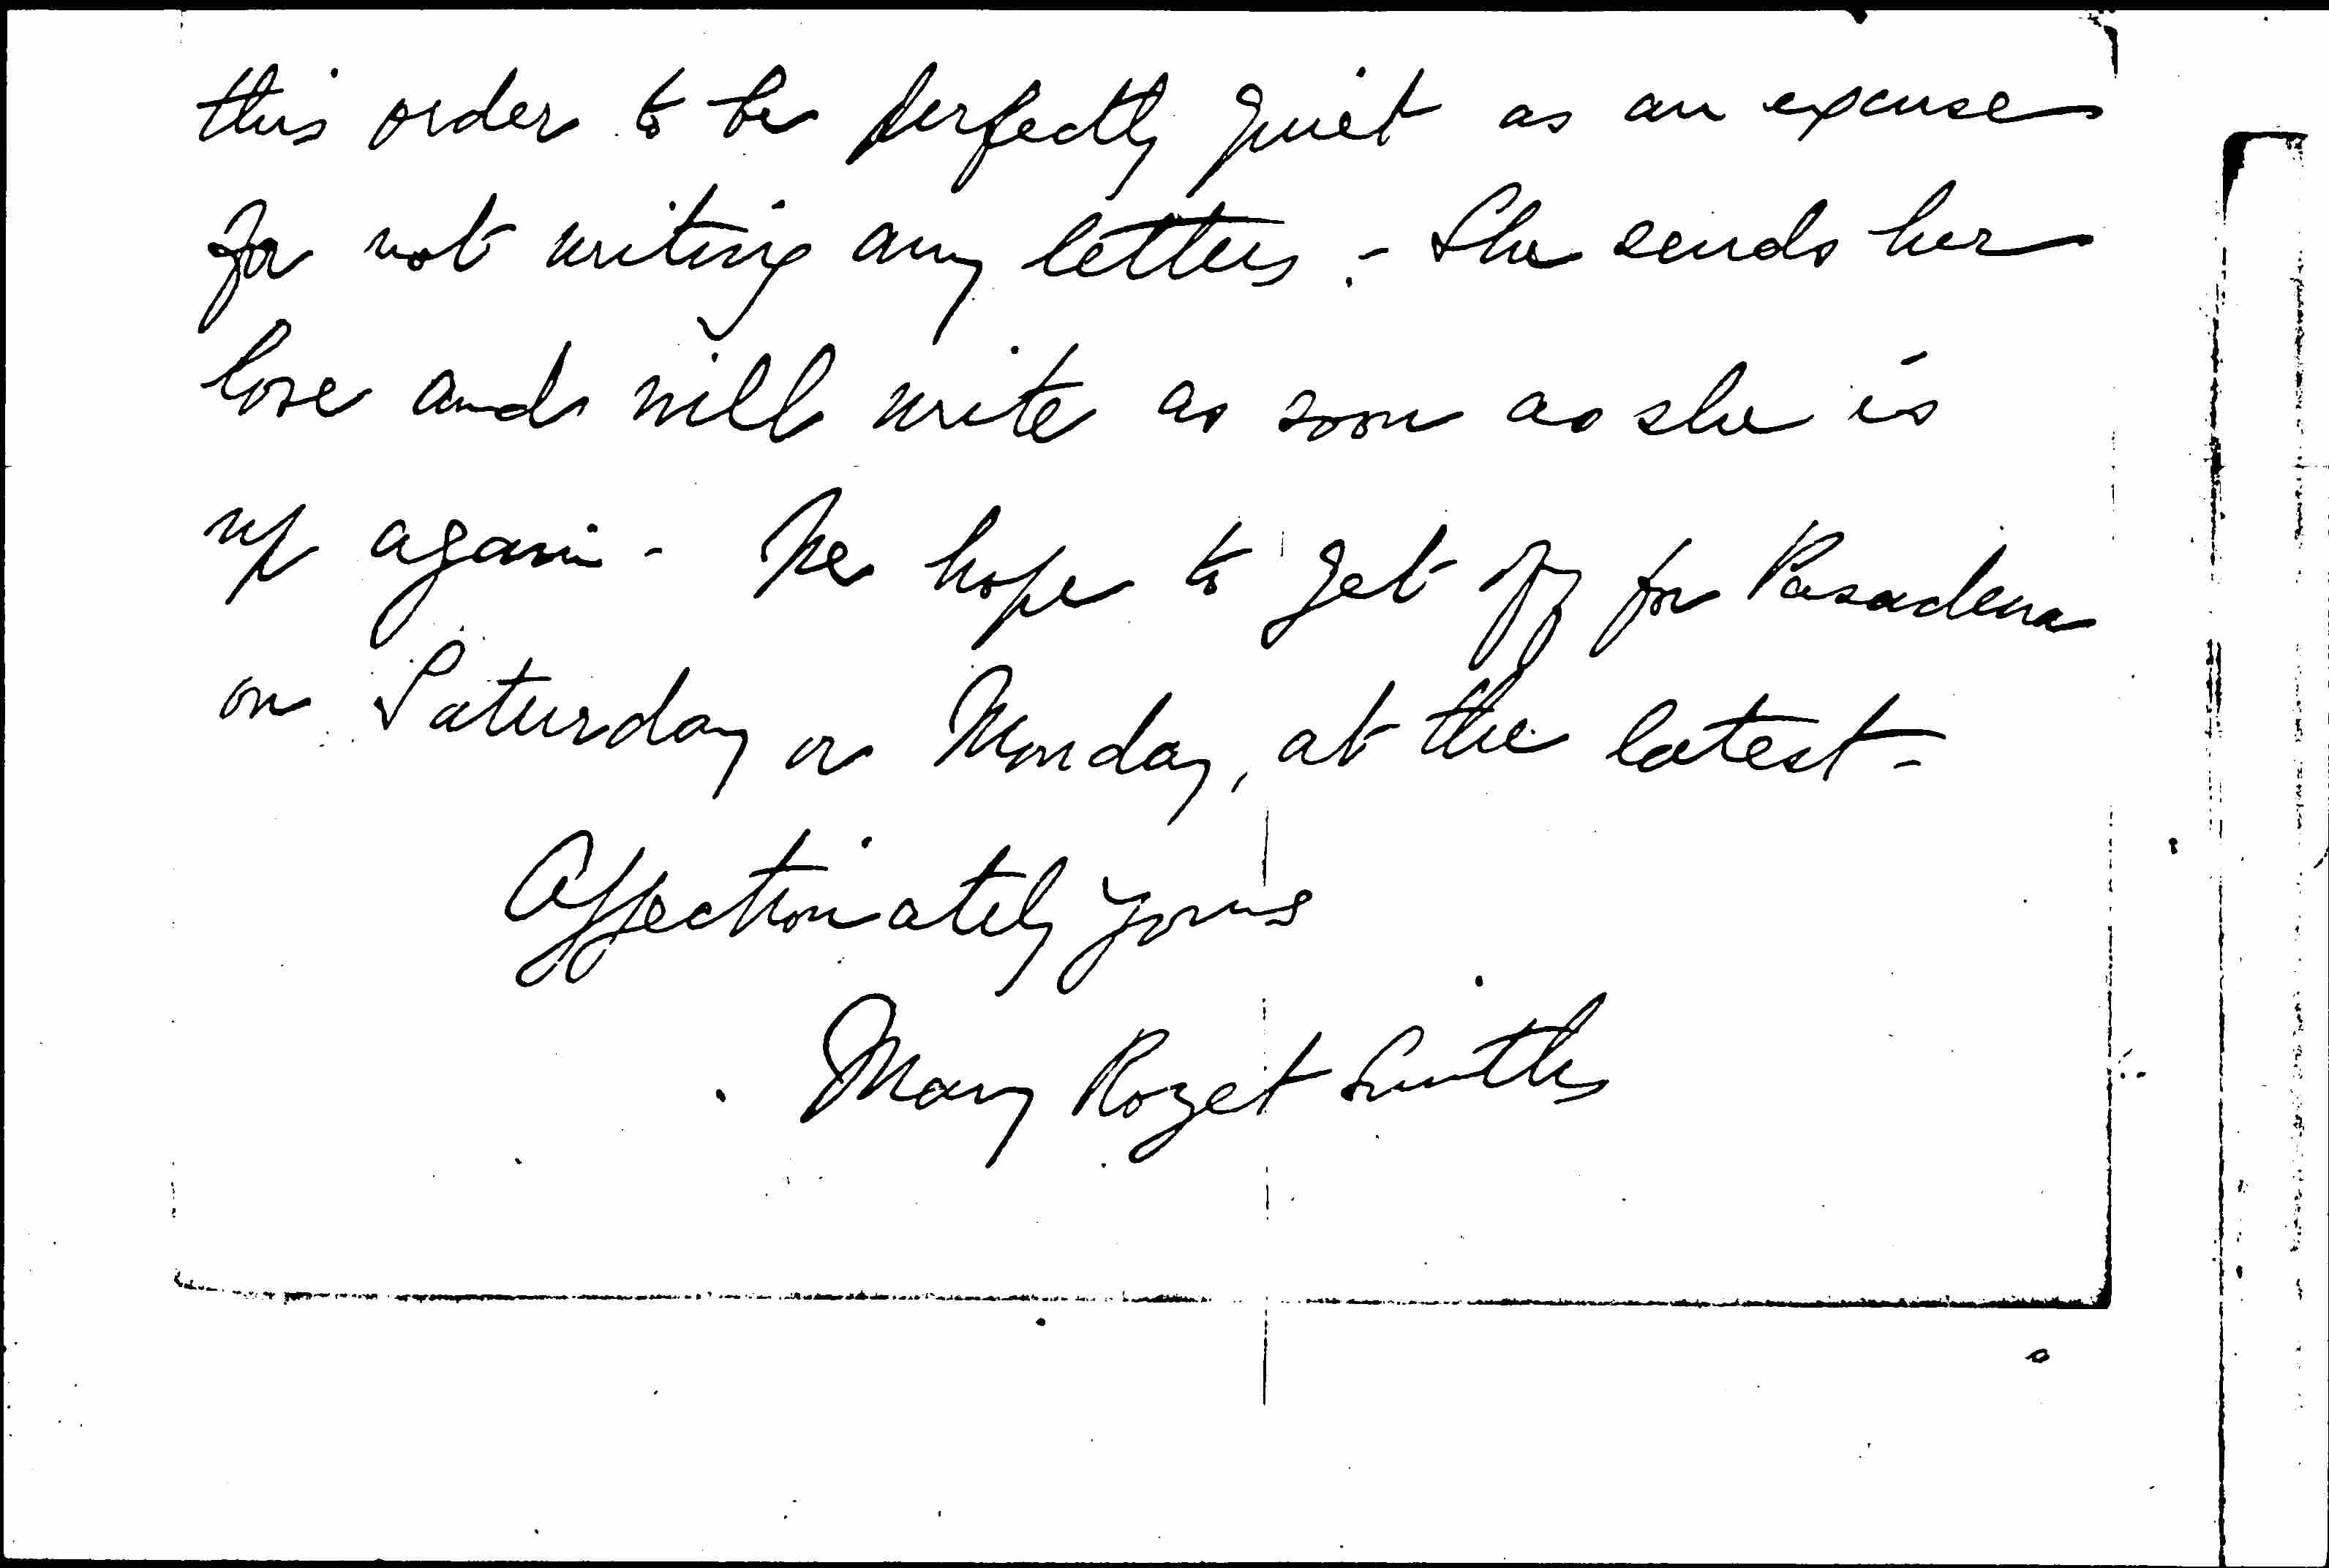 this order to be perfectly quiet as an excuse
for not writing any letters. - She sends her
love and will write as soon as she is
up again - We hope to get off for Pasadena
on Saturday or Monday, at the latest -
Affectionately yours
Mary Rozet Smith